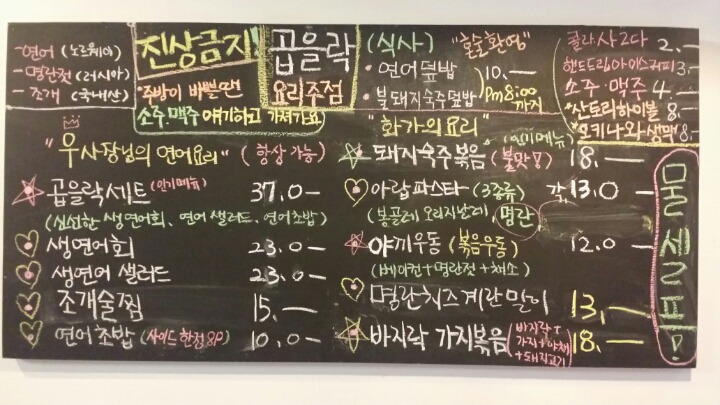 -연어 (노르웨이)
-명란젓 (러시아)
-조개 (국내산)
진상금지!
*주방이 바쁠땐
소주 맥주 얘기하고 가져가요
곱을락
요리주점
(식사) "혼술환영"
·연어덮밥 10.—
·불돼지숙주덮밥 PM8:00 까지
콜라 사이다 2.—
핸드드립아이스커피 3.—
소주·맥주 4—
*산토리하이볼 8.—
*오키나와생맥 8.—
"우사장님의 연어요리" (항상 가능)
곱을락세트 (인기메뉴) 37.0—
(신선한 생연어회, 연어 샐러드, 연어초밥)
생연어회 23.0—
생연어 샐러드 23.0—
조개술찜 15.—
연어초밥 (사이드 한정 8P) 10.0—
"화가의요리" (인기메뉴)
돼지숙주볶음 (불맛) 18.—
아랍파스타 (3종류) 각, 13.0—
(봉골레, 오리지날레, 명란)
야끼우동 (볶음우동) 12.0—
(베이컨+명란젓+채소)
명란치즈계란말이 13,—
바지락 가지볶음 (바지락+가지+야채+돼지고기) 18.—
물 셀프!